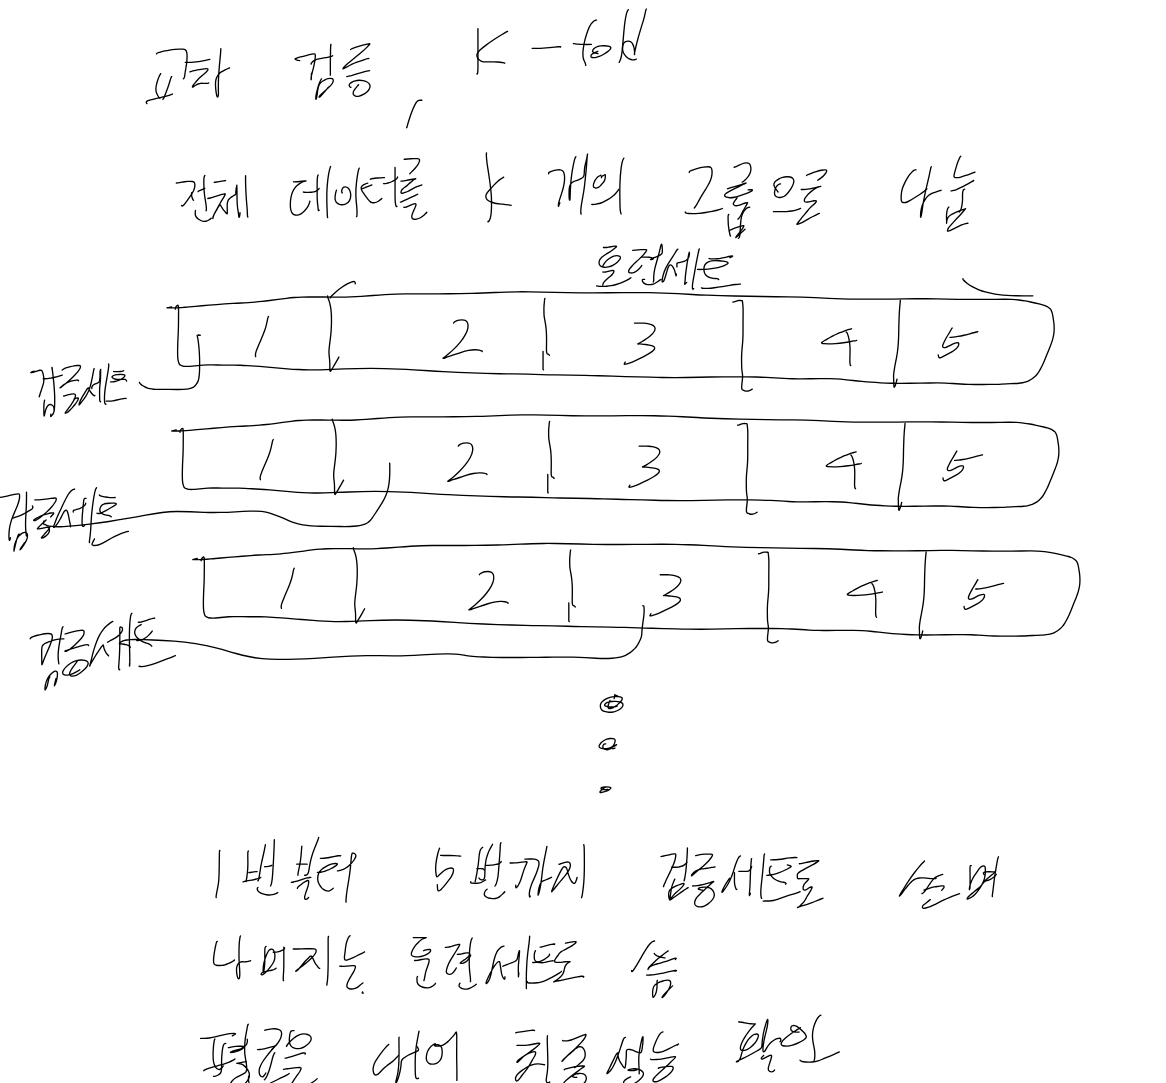 교차 검증, K-fold
전체 데이터를 K 개의 그룹으로 나눔
훈련세트
1 2 3 4 5
검증세트
1 2 3 4 5
검증세트
1 2 3 4 5
검증세트
1번부터 5번까지 검증세트로 쓰며
나머지는 훈련세트로 씀
평균을 내어 최종성능 확인